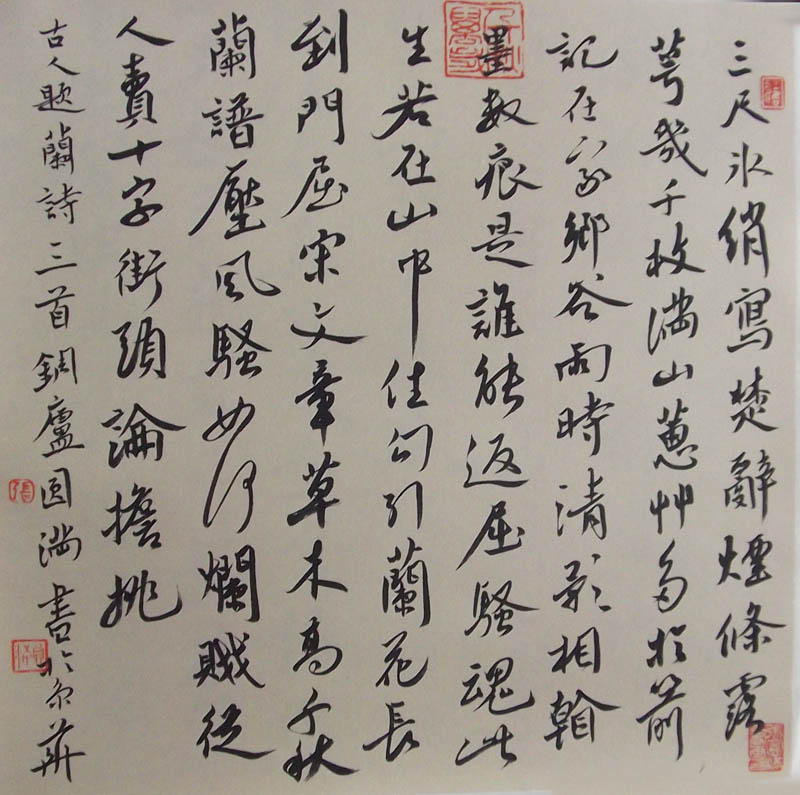 三尺冰綃寫楚辭煙條露
萼幾千枝滿山蕙艸多於箭
記在家鄉谷雨時清影相翰
墨數痕是誰能返屈騷魂此
生若在山中住勾引蘭花長
到門屈宋文章草木高千秋
蘭譜壓風騷如何爛賤從
人賣十字街頭論擔挑
古人題蘭詩三首銅廬圓滿書於京華
張